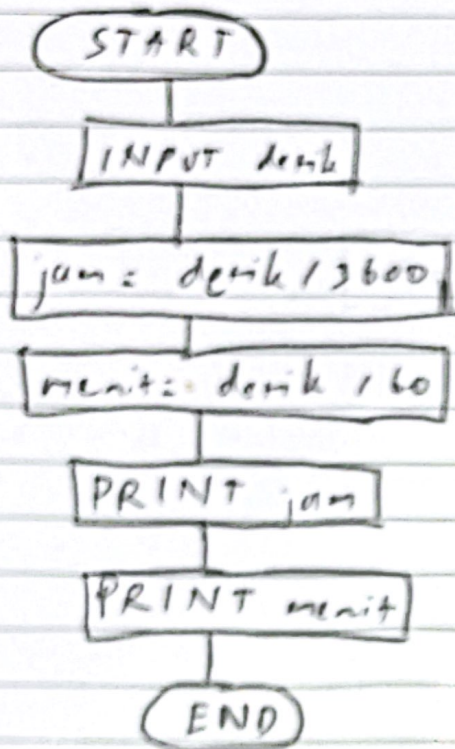 START
INPUT detik
jam = detik / 3600
menit = detik / 60
PRINT jam
PRINT menit
END